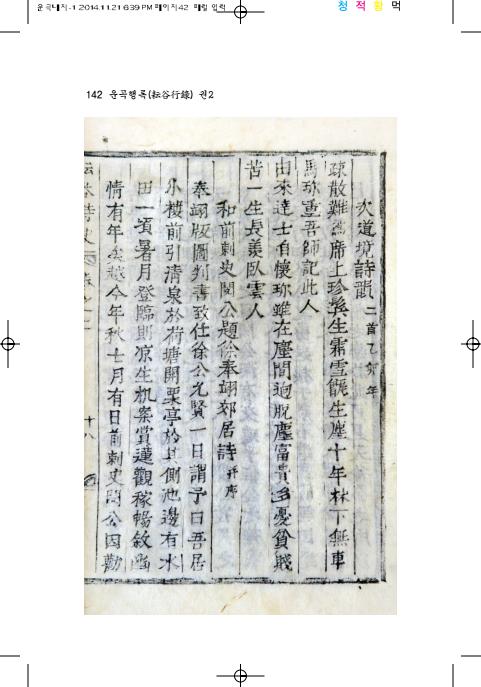 운곡내지-1 2014.11.21 6:39 PM 페이지42 매립 입력
청 적 황 먹
142 운곡행록(耘谷行錄) 권2
次道境詩韻 二首乙卯年
疎散難爲席上珍鬂生霜雪甑生塵十年林下無車
馬珎重吾師記此人
由來達士自懷珎雖在塵間逈脫塵富貴多憂貧賤
苦一生長羨臥雲人
和前刺史閔公題徐奉翊郊居詩 幷序
奉翊版圖判書致仕徐公允賢一日謂予曰吾居
小樓前引淸泉於荷塘開栗亭於其側池邊有水
田一頃暑月登臨則凉生机案賞蓮觀稼暢敘幽
情有年矣越今年秋七月有日前刺史閔公因勸
耘谷詩史
十八